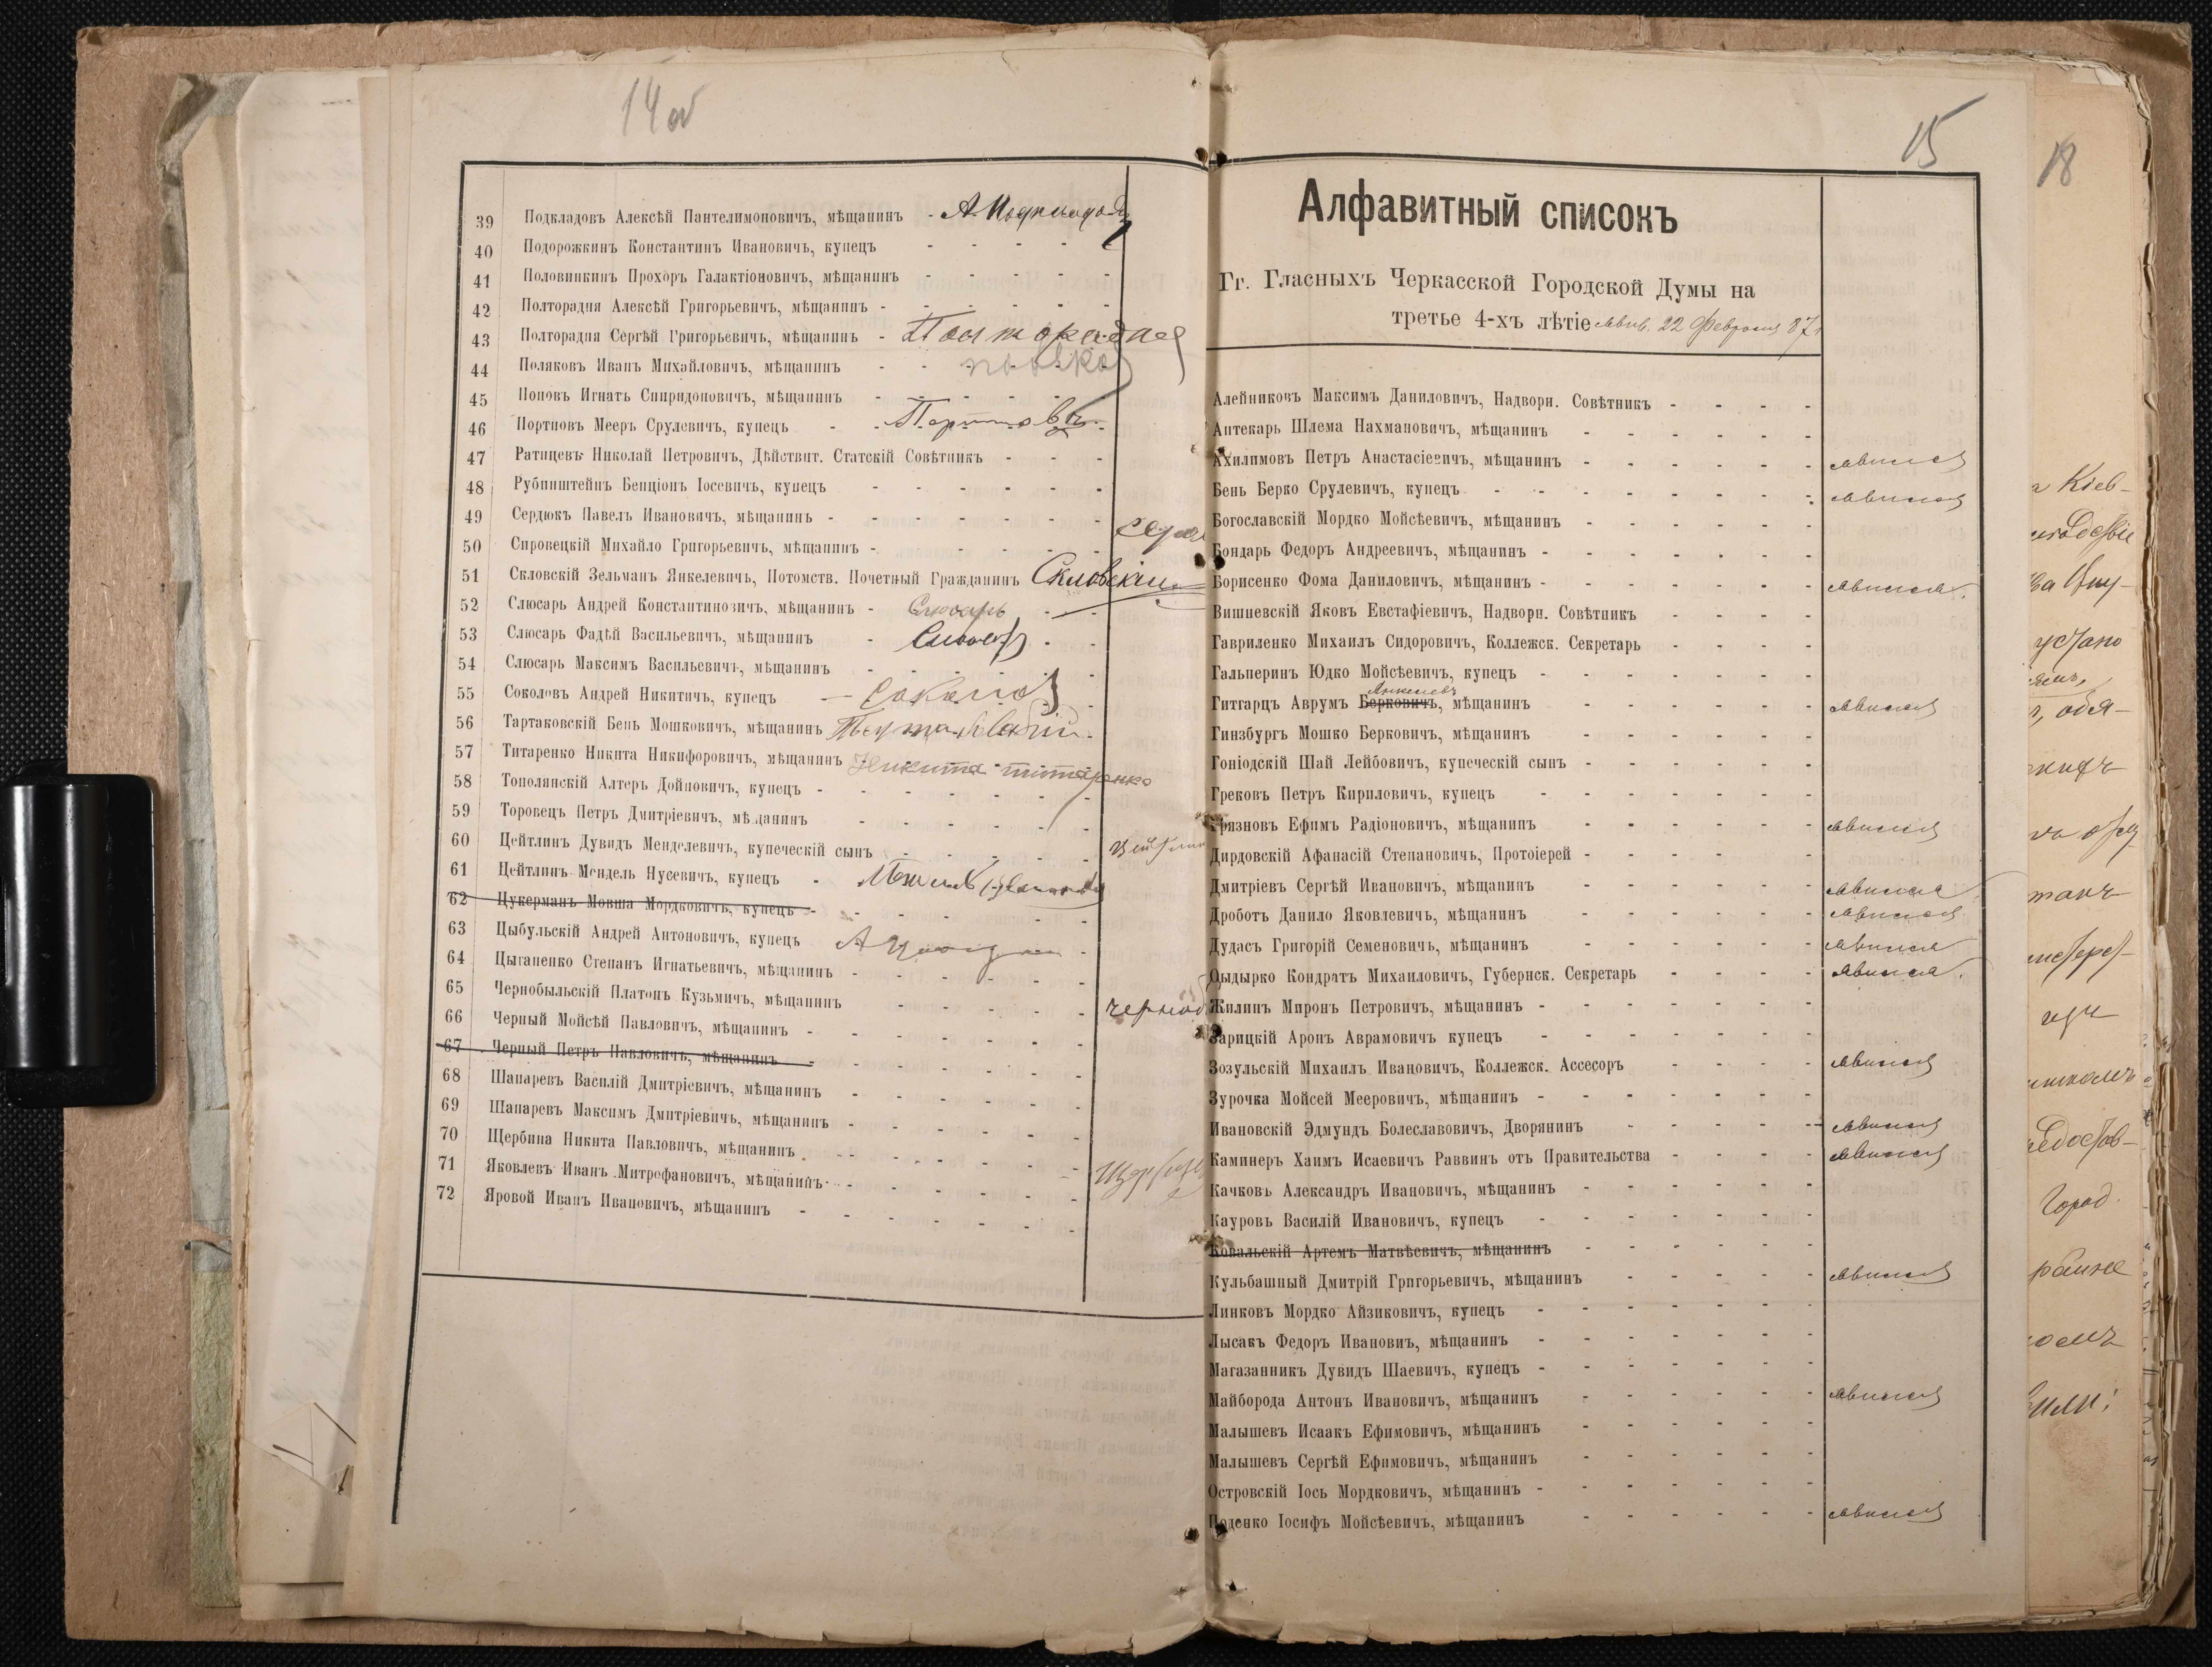 14 об
39 Подкладовъ Алексѣй Пантелимоновичъ, мѣщанинъ - А. Подкладовъ
40 Подорожкинъ Константинъ Ивановичъ, купецъ
41 Половинкинъ Прохоръ Галактіоновичъ, мѣщанинъ
42 Полторадня Алексѣй Григорьевичъ, мѣщанинъ
43 Полторадня Сергѣй Григорьевичъ, мѣщанинъ - Полторадня
44 Поляковъ Иванъ Михайловичъ, мѣщанинъ
45 Поповъ Игнатъ Спиридоновичъ, мѣщанинъ
46 Портновъ Мееръ Срулевичъ, купецъ - Портновъ
47 Ратицевъ Николай Петровичъ, Дѣйствит. Статскій Совѣтникъ
48 Рубинштейнъ Бенціонъ Іосевичъ, купецъ
49 Сердюкъ Павелъ Ивановичъ, мѣщанинъ
50 Сировецкій Михайло Григорьевичъ, мѣщанинъ
51 Скловскій Зельманъ Янкелевичъ, Потомств. Почетный Гражданинъ Скловскій
52 Слюсарь Андрей Константиновичъ, мѣщанинъ - Слюсарь
53 Слюсарь Фадѣй Васильевичъ, мѣщанинъ
54 Слюсарь Максимъ Васильевичъ, мѣщанинъ
55 Соколовъ Андрей Никитичъ, купецъ - Соколов
56 Тартаковскій Бень Мошковичъ, мѣщанинъ
57 Титаренко Никита Никифоровичъ, мѣщанинъ Никита титаренко
58 Тополянскій Алтеръ Дойновичъ, купецъ
59 Торовецъ Петръ Дмитріевичъ, мѣщанинъ
60 Цейтлинъ Дувидъ Менделевичъ, купеческій сынъ Цейтлин
61 Цейтлинъ Мендель Нусевичъ, купецъ
62 Цукерманъ Мовша Мордковичъ, купецъ
63 Цыбульскій Андрей Антоновичъ, купецъ
64 Цыганенко Степанъ Игнатьевичъ, мѣщанинъ
65 Чернобыльскій Платонъ Кузьмичъ, мѣщанинъ черноб
66 Черный Мойсѣй Павловичъ, мѣщанинъ
67 Черный Петръ Павловичъ, мѣщанинъ
68 Шапаревъ Василій Дмитріевичъ, мѣщанинъ
69 Шапаревъ Максимъ Дмитріевичъ, мѣщанинъ
70 Щербина Никита Павловичъ, мѣщанинъ
71 Яковлевъ Иванъ Митрофановичъ, мѣщанинъ
72 Яровой Иванъ Ивановичъ, мѣщанинъ
15
Алфавитный списокъ
Гг. Гласныхъ Черкасской Городской Думы на
третье 4-хъ лѣтіе явив. 22 Февраля 87 г
Алейниковъ Максимъ Даниловичъ, Надворн. Совѣтникъ
Аптекарь Шлема Нахмановичъ, мѣщанинъ
Ахилимовъ Петръ Анастасіевичъ, мѣщанинъ явился
Бень Берко Срулевичъ, купецъ явился
Богославскій Мордко Мойсѣевичъ, мѣщанинъ
Бондарь Федоръ Андреевичъ, мѣщанинъ
Борисенко Фома Даниловичъ, мѣщанинъ явился
Вишневскій Яковъ Евстафіевичъ, Надворн. Совѣтникъ
Гавриленко Михаилъ Сидоровичъ, Коллежск. Секретарь
Гальперинъ Юдко Мойсѣевичъ, купецъ
Янкелевъ
Гитгарцъ Аврумъ Берковичъ, мѣщанинъ явился
Гинзбургъ Мошко Берковичъ, мѣщанинъ
Гоніодскій Шай Лейбовичъ, купеческій сынъ
Грековъ Петръ Кириловичъ, купецъ
Грязновъ Ефимъ Радіоновичъ, мѣщанинъ явился
Дирдовскій Афанасій Степановичъ, Протоіерей
Дмитріевъ Сергѣй Ивановичъ, мѣщанинъ явился
Дроботъ Данило Яковлевичъ, мѣщанинъ явился
Дудасъ Григорій Семеновичъ, мѣщанинъ явился
Дыдырко Кондратъ Михаиловичъ, Губернск. Секретарь явился
Жилинъ Миронъ Петровичъ, мѣщанинъ
Зарицкій Аронъ Аврамовичъ купецъ
Зозульскій Михаилъ Ивановичъ, Коллежск. Ассесоръ явился
Зурочка Мойсей Мееровичъ, мѣщанинъ
Ивановскій Эдмундъ Болеславовичъ, Дворянинъ явился
Каминеръ Хаимъ Исаевичъ Раввинъ отъ Правительства явился
Качковъ Александръ Ивановичъ, мѣщанинъ
Кауровъ Василій Ивановичъ, купецъ
Ковальскій Артемъ Матвѣевичъ, мѣщанинъ
Кульбашный Дмитрій Григорьевичъ, мѣщанинъ явился
Линковъ Мордко Айзиковичъ, купецъ
Лысакъ Федоръ Ивановиъ, мѣщанинъ
Магазанникъ Дувидъ Шаевичъ, купецъ
Майборода Антонъ Ивановичъ, мѣщанинъ явился
Малышевъ Исаакъ Ефимовичъ, мѣщанинъ
Малышевъ Сергѣй Ефимовичъ, мѣщанинъ
Островскій Іось Мордковичъ, мѣщанинъ
Поденко Іосифъ Мойсѣевичъ, мѣщанинъ явился
18
Кіев-
устано
обя-
Город.